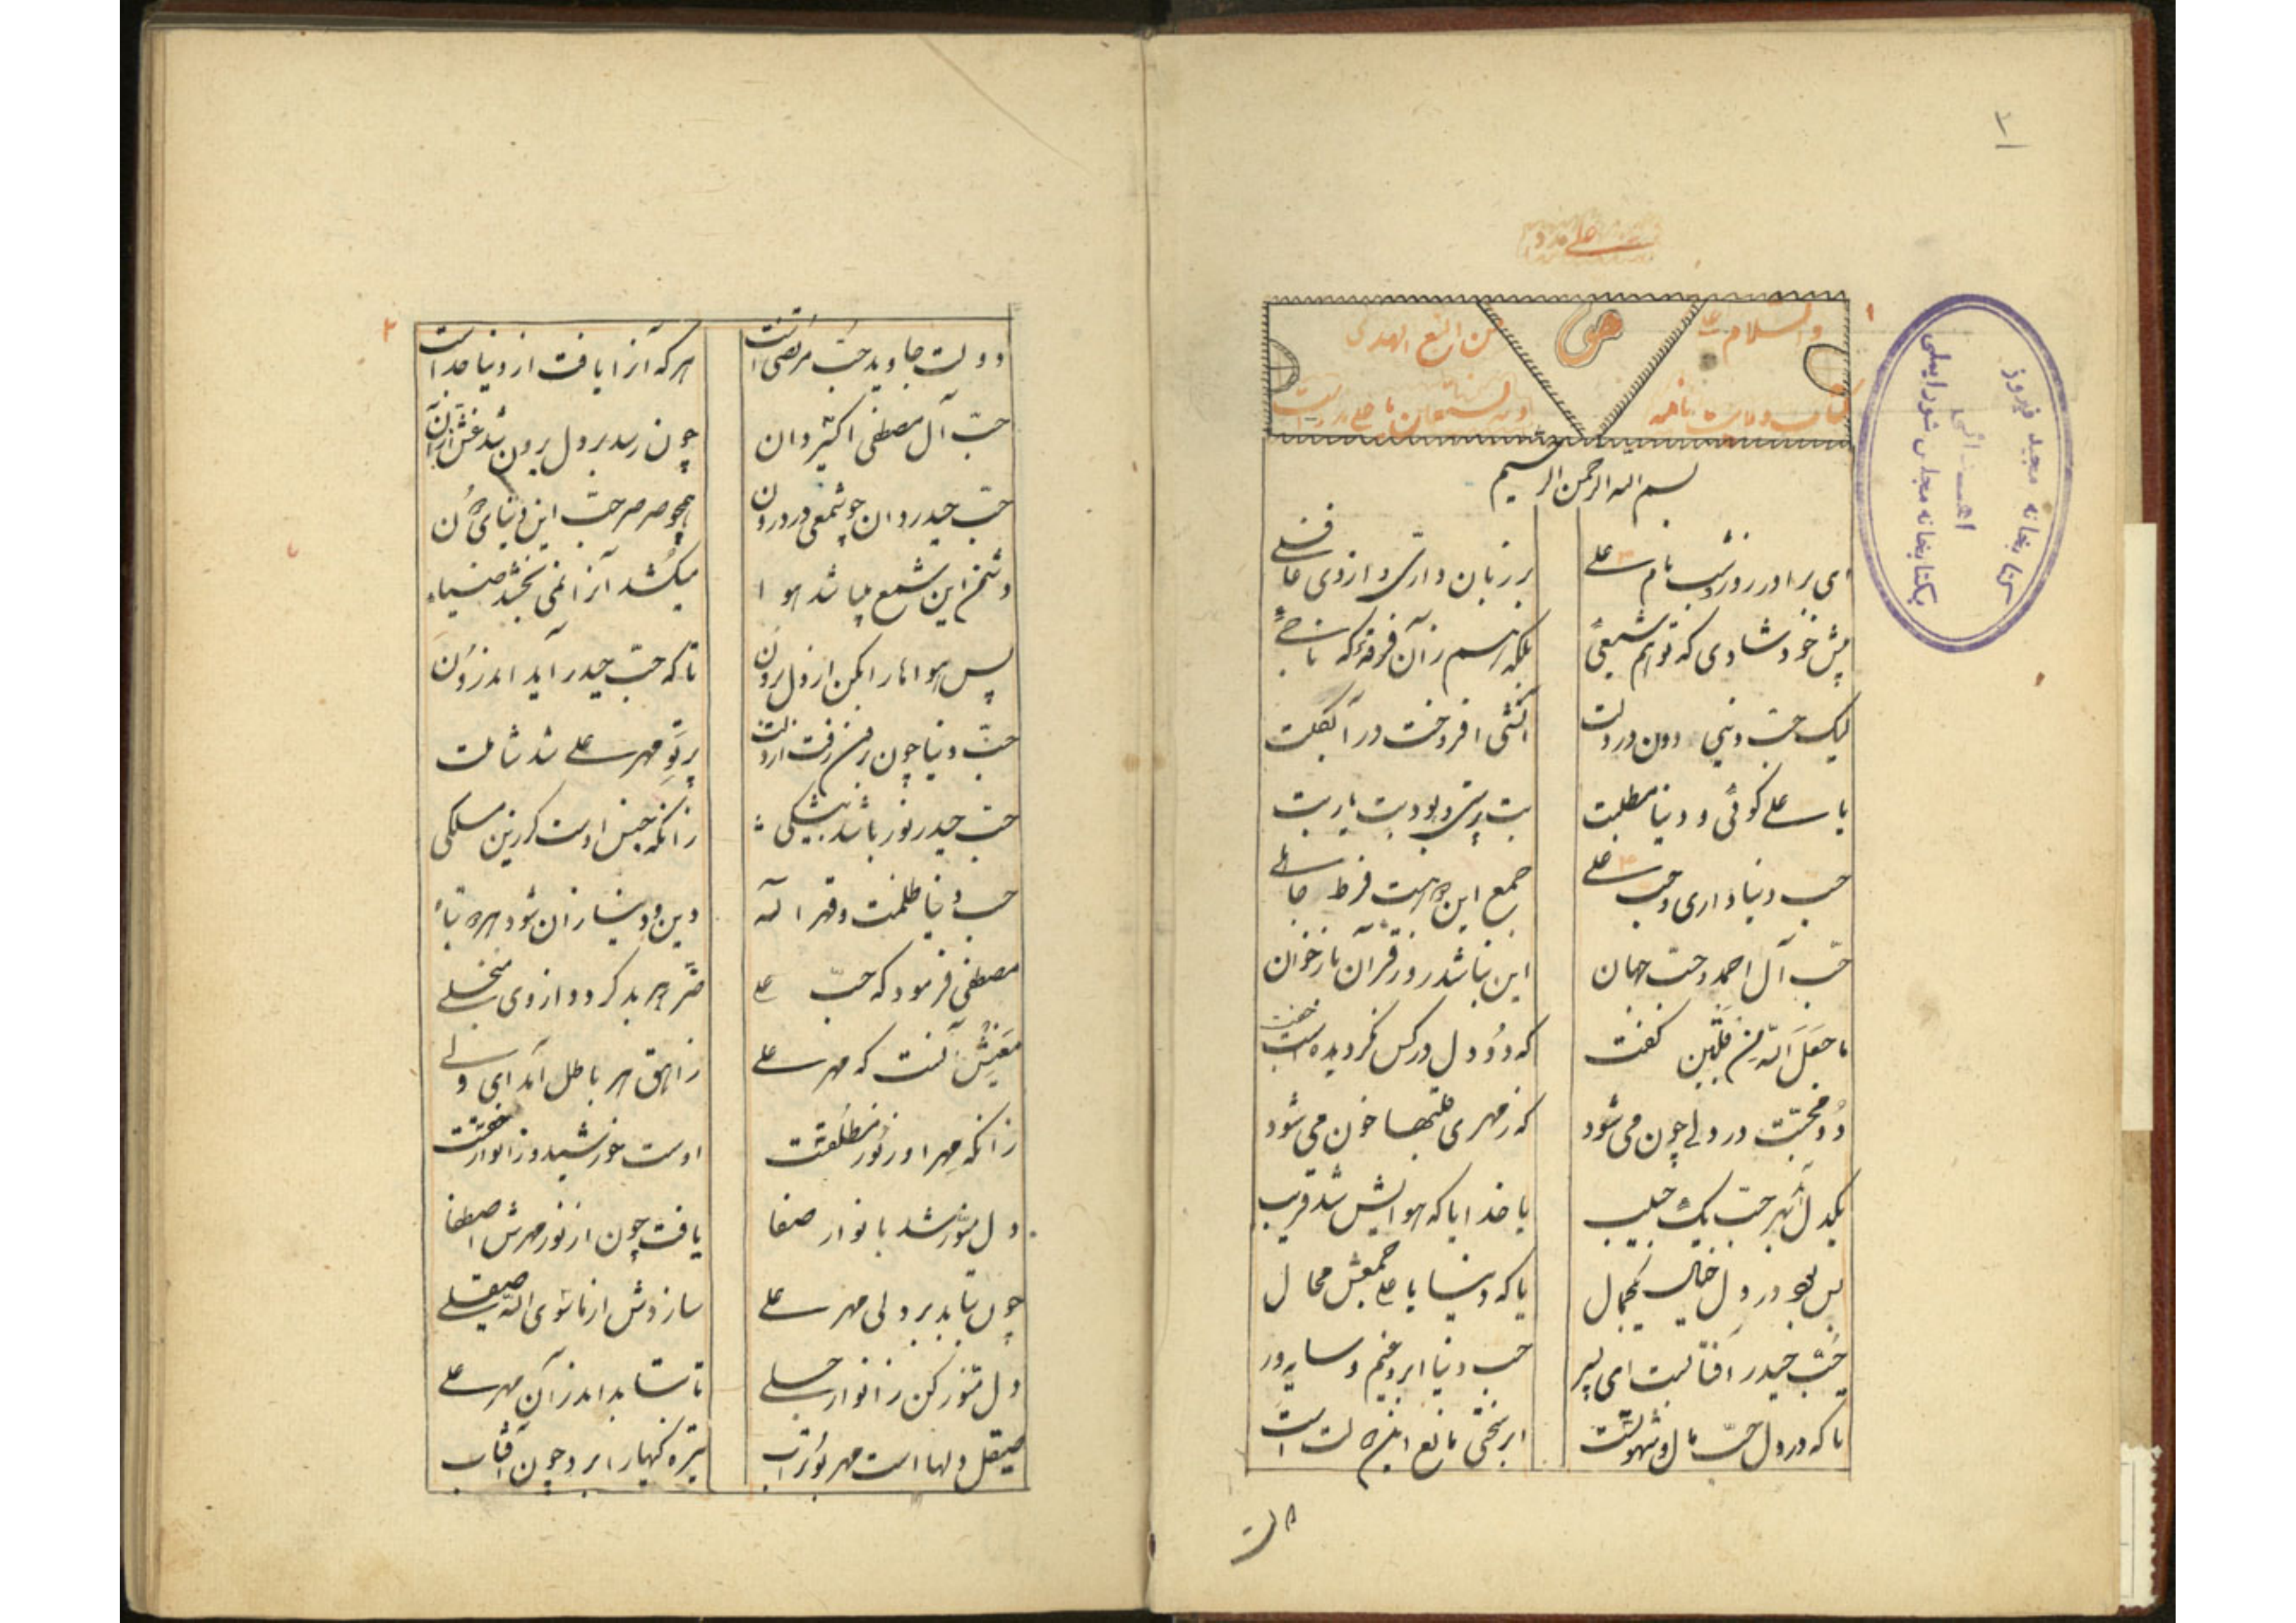 ۲
علی مدد
والسلام علی من اتبع الهدی
حق
وبه نستعین
بسم الله الرحمن الرحیم
ای برادر روز و شب نام علی بر زبان داری و از وی غافلی
پیش خود شادی که تو هم شیعیٔ بلکه هم زآن فرقهٔ که ناجیٔ
لیک حب دنیی دون در دلت آتشی افروخت در آب گلت
با علی گوئی و دنیا مطلبت بت پرستی و بود بت یا ربت
حب دنیا داری و حب علی جمع این هر هست فرط جاهلی
حبّ آل احمد و حبّ جهان این نباشد رو ز قرآن باز خوان
ما جَعَلَ الله مِن قَلبَین گفت که دو دل در کس نگردیده است جفت
دو محبّت در دلی چون می‌شود که ز مهری قلبها خون می‌شود
یکدل از بهر حبّ یک حبیب یا خدا یا که هوایش شد قریب
بس بود در دل خیال یک جمال یا که دنیا با علی جمعش محال
حُبّ حیدر آفتابست ای پسر حب دنیا ابر و غیم و سایه ور
تا که در دل حبّ مال و شهوتست ابر سختی مانع این است
کتابخانه مجید فیروز
اهدائی
بکتابخانه مجلس شورایملی
۲
دولت جاوید حُب مرتضی است هر که آنرا یافت از دنیا جداست
حبّ آل مصطفی اکثیر دان چون رسد بر دل برون شد غش از آن
حبّ حیدر دان چو شمعی در درون همچو صرصر حبّ این دنیای دُن
دشمن این شمع میباشد هوا میکُشد آنرا نمی‌بخشد ضیاء
پس هواها را بکن از دل برون تا که حبّ حیدر آید اندرون
حبّ دنیا چون برون رفت از دلت پرتو مهر علی شد شاملت
حبّ حیدر نور باشد بیشکی زانکه جنس اوست کر زین مسلکی
حب دنیا ظلمت و قهر اله دین و دنیا زان شود هر دو تباه
مصطفی فرمود که حبّ علی ضرّ هر بد گردد از وی منجلی
معنیش آنست که مهر علی زاهق هر باطل آمد ای ولی
زانکه مهر او ز نور مطلقست اوست خورشید و ز انوار حقست
دل منوّر شد بانوار صفا یافت چون از نور مهرش اصطفا
چون بتابد بر دلی مهر علی سازدش از ماسوی الله صیقلی
دل منوّر کن ز انوار جلی تا بتابد اندر آن مهر علی
صیقل دلها است مهر بوتراب تیره‌گیها را برد چون آفتاب